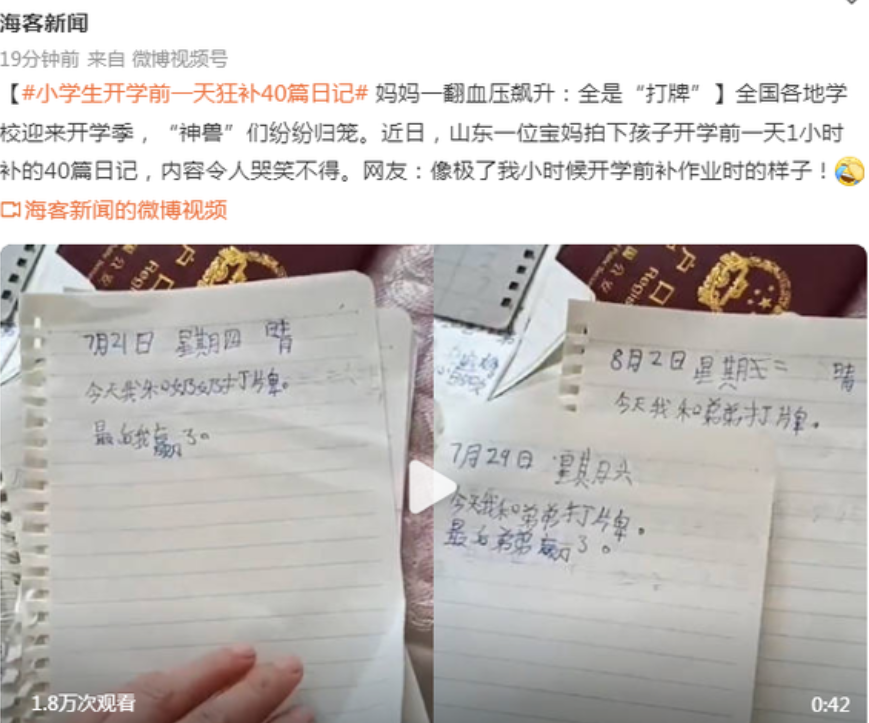 海客新闻
19分钟前 来自 微博视频号
【#小学生开学前一天狂补40篇日记# 妈妈一翻血压飙升：全是“打牌”】全国各地学
校迎来开学季，“神兽”们纷纷归笼。近日，山东一位宝妈拍下孩子开学前一天1小时
补的40篇日记，内容令人哭笑不得。网友：像极了我小时候开学前补作业时的样子！
海客新闻的微博视频
7月21日 星期四 晴
今天我和奶奶打牌。
最后我赢了。
8月2日 星期二 晴
今天我和弟弟打牌。
7月29日 星期六
今天我和弟弟打牌。
最后弟弟赢了。
1.8万次观看
0:42